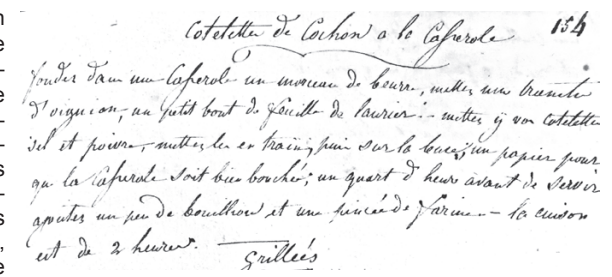 Cotelettes de Cochon a la Casserole 154
fondez dans une Casserole un morceau de beurre, mettez une tranche
d'oignion, un petit bout de feuille de laurier : mettez y vos Cotelettes
sel et poivre, mettez les en train, puis sur la un papier pour
que la Casserole soit bien bouché; un quart d'heure avant de servir
ajoutez un peu de bouillon et une pincée de farine - la cuison
est de 2 heures.
Grillées